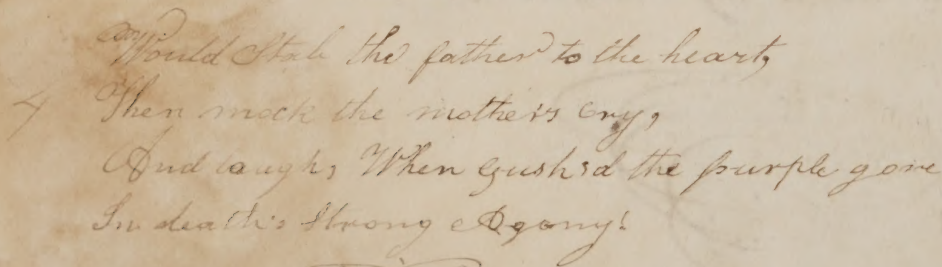 Would Stab the father to the heart,
4 Then mock the mother's cry,
And laugh, When gush'd the purple gore
In death's Strong Agony!